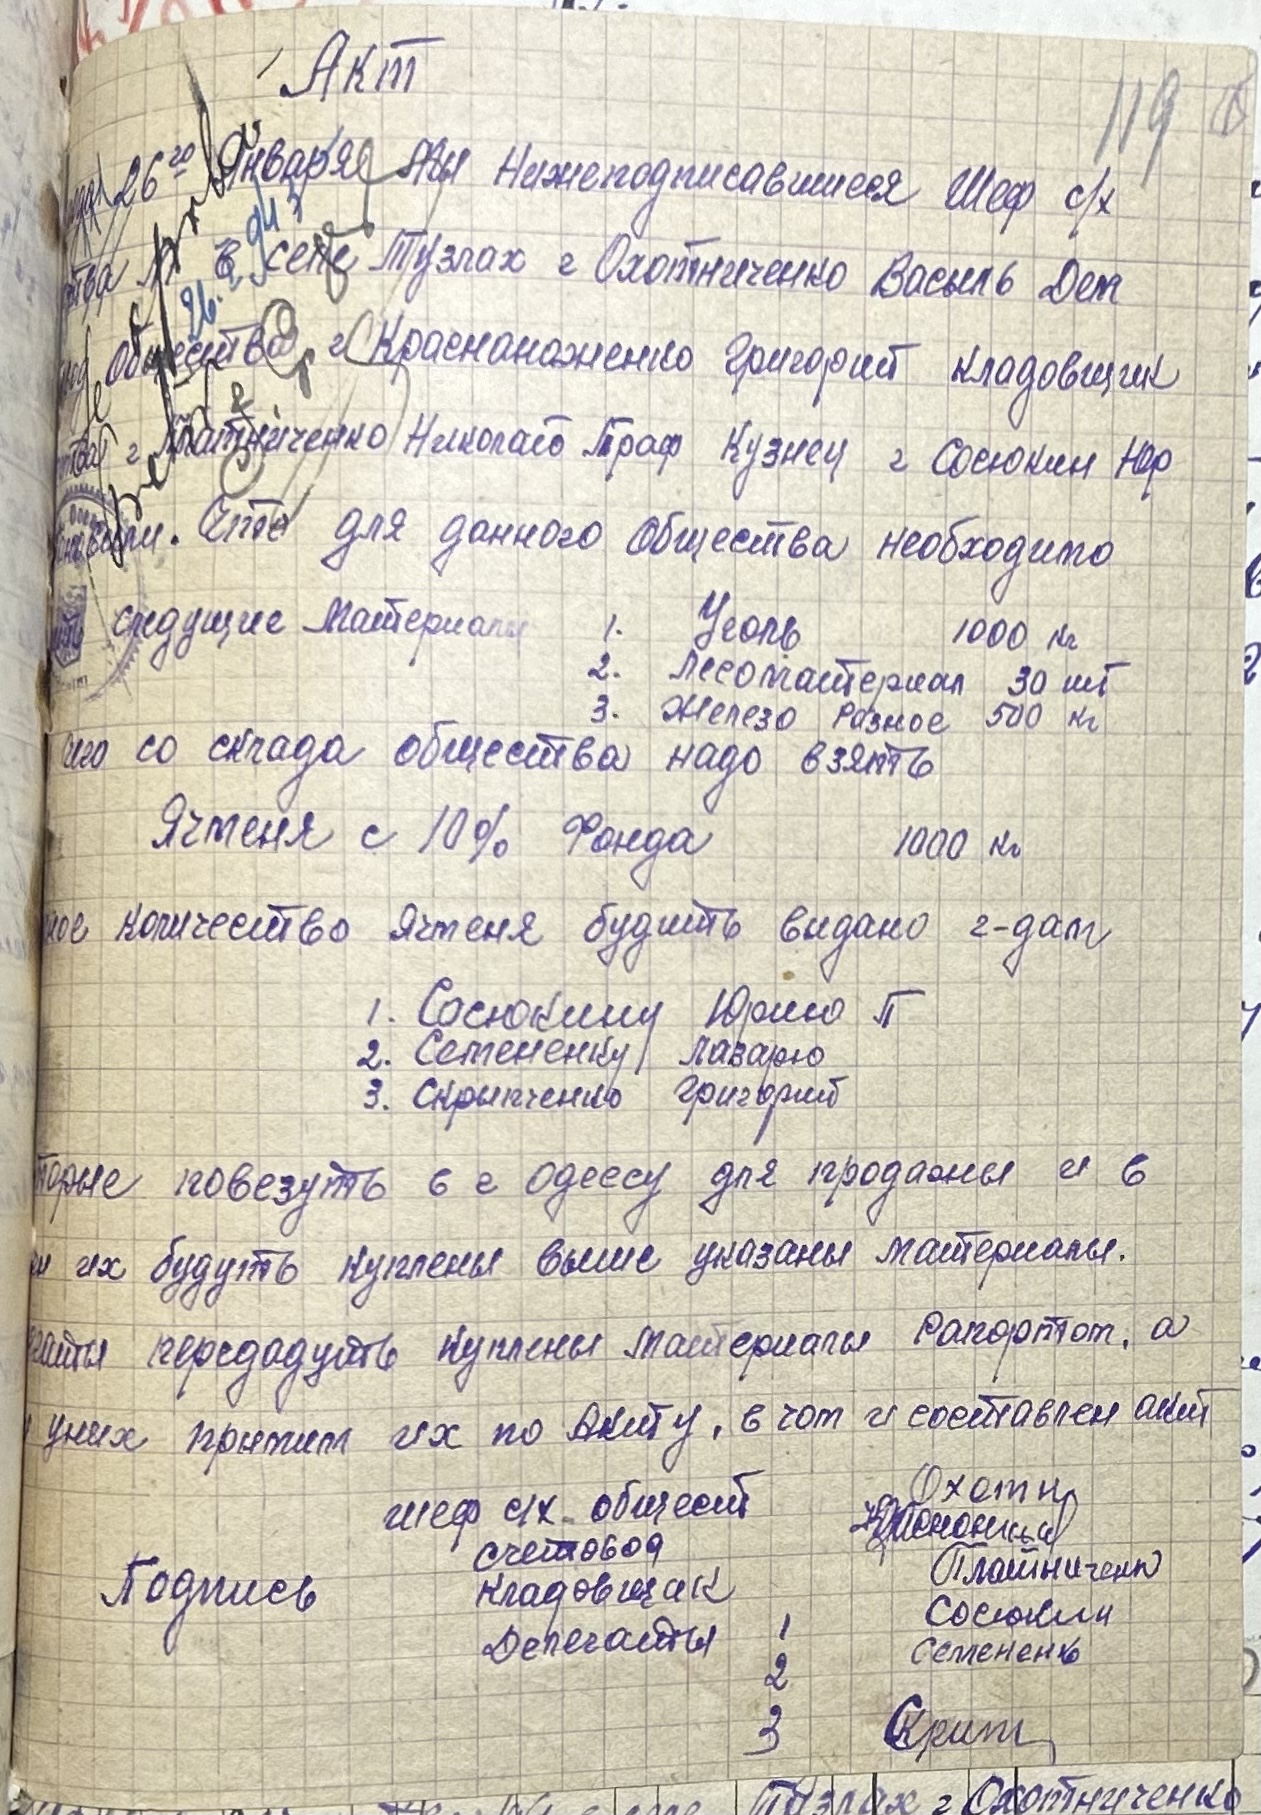 Акт
119
26го Января Мы Нижеподписавшиеся Шеф с/х
ства в селе Тузлах г Охотниченко Василь Дем
Общества г Краснаноженко Григорий кладовщик
ства г Платниченко Николай Траф Кузнец г Сосюкин Юр
26. 943
вили. Что для данного Общества необходимо
следущие Материалы 1. Уголь 1000 кг
2. Лесоматериал 30 шт
3. Железо разное 500 кг
чего со склада общества надо взять
Ячменя с 10% Фонда 1000 кг
ное количество Ячменя будить видано г-дам
1. Сосюкину Юрию П
2. Семененку Лазарю
3. Скрыпченко Григорий
торые повезуть в г Одессу для продажы и в
их будуть куплены выше указаны материалы.
гаты передадуть куплены материалы Рапортом, а
у них примит их по Акту, в чом и составлен акт
шеф с/х. общест Охотн
счетовод
Подпись кладовщик Платниченк
Делегаты 1 Сосюкин
2 Семененк
3 Скрип
Тузлах г Охотниченко